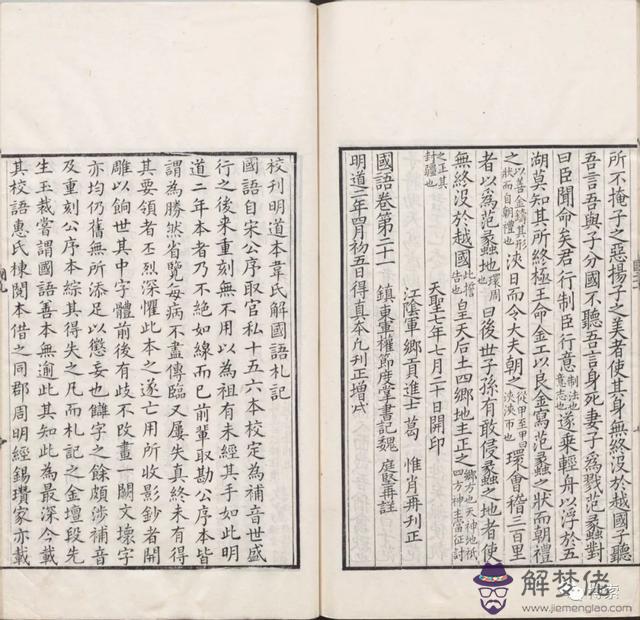 所不掩子之惡揚子之美者使其身無終沒於越國子聽
吾言吾與子分國不聽吾言身死妻子爲戮范蠡對
曰臣聞命矣君行制臣行意制法也意志也遂乘輕舟以浮於五
湖莫知其所終極王命金工以良金寫范蠡之狀而朝禮
之以善金鑄其形狀而自朝禮也浹日而令大夫朝之從甲至甲曰浹浹帀也環會稽三百里
者以爲范蠡地環周也曰後世子孫有敢侵蠡之地者使
無終沒於越國此誓告也皇天后土四鄉地主正之鄉方也天神地祇四方神主當征討
之正其封疆也
天聖七年七月二十日開印
江陰軍鄉貢進士葛惟肖再刊正
國語卷第二十一 鎮東軍權節度掌書記魏庭堅再註
明道二年四月初五日得真本凡刊正增減
校刊明道本韋氏解國語札記
國語自宋公序取官私十五六本校定爲補音世盛
行之後來重刻無不用以爲祖有未經其手如此明
道二年本者乃不絕如線而已前輩取勘公序本皆
謂爲勝然省覽每病不盡傳臨又屢失真終未有得
其要領者丕烈深懼此本之遂亡用所收影鈔者開
雕以餉世其中字體前後有歧不改畫一闕文壞字
亦均仍舊無所添足以懲妄也讎字之餘頗涉補音
及重刻公序本綜其得失之凡而札記之金壇段先
生玉裁嘗謂國語善本無逾此其知此爲最深今載
其校語惠氏棟閱本借之同郡周明經錫瓚家亦載
解梦佬
www.jiemenglao.com